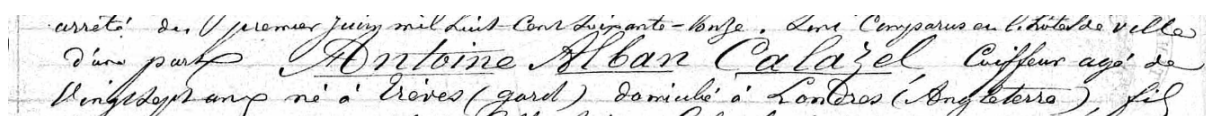 arrêté du premier Juin mil huit Cent Soixante-Onze. Sont Comparus en l'hôtel de ville
d'une part Antoine Alban Calazel, Coiffeur agé de
Vingt sept ans né à Trèves (gard) domicilié à Londres (Angleterre), fils